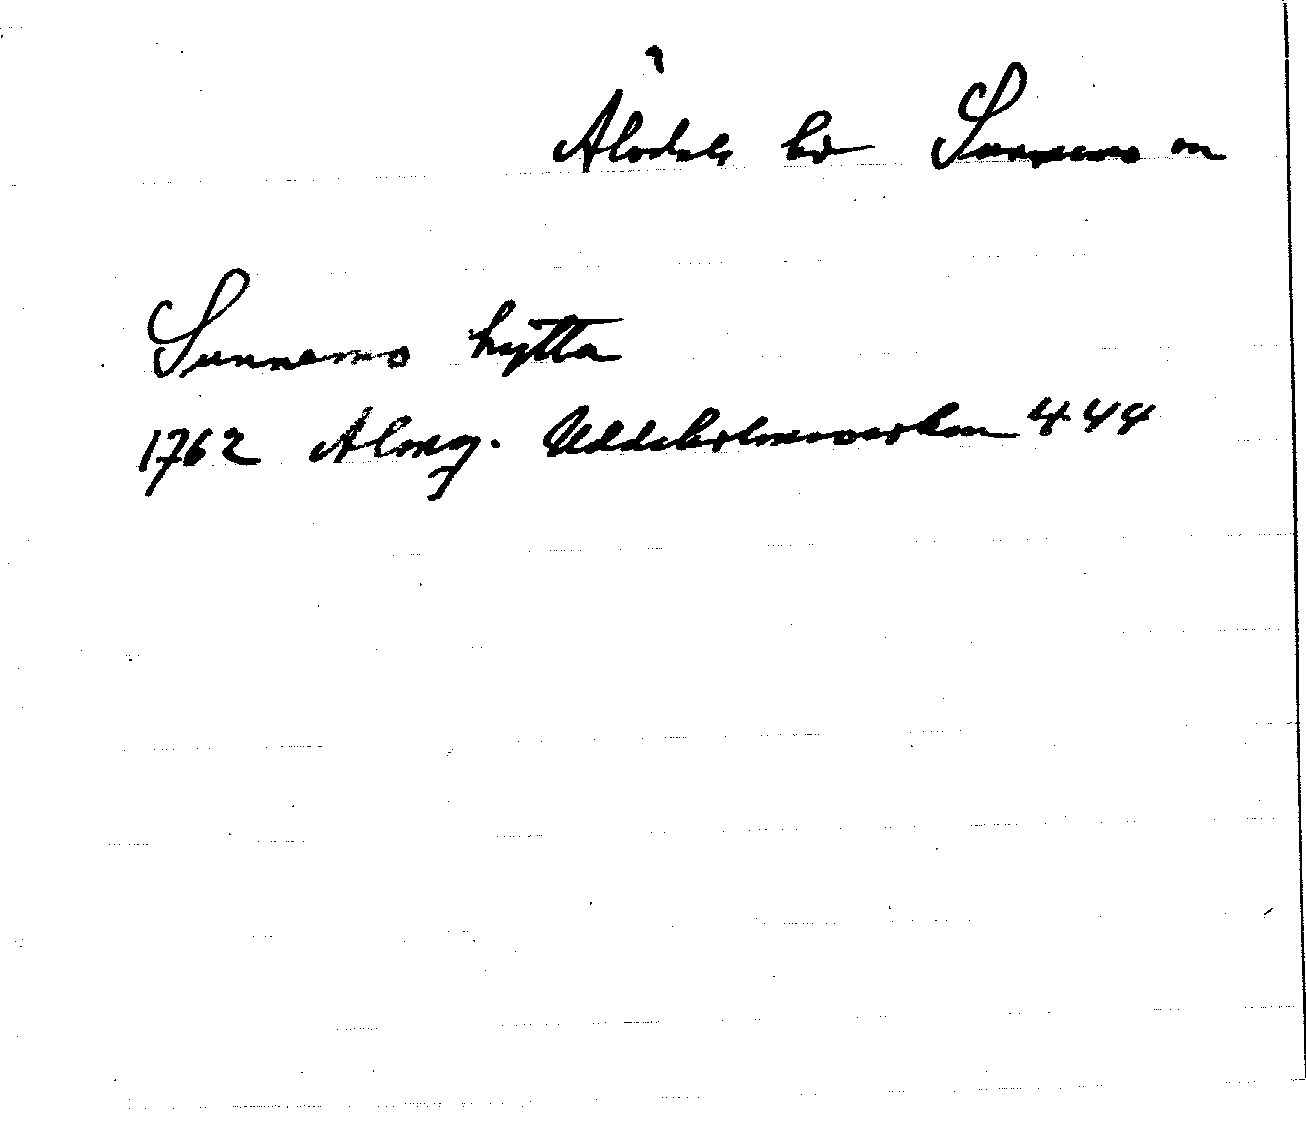 Älvdals hd Sunnemo sn
Sunnemo hytta
1762 Almg. Uddeholmsverken 444